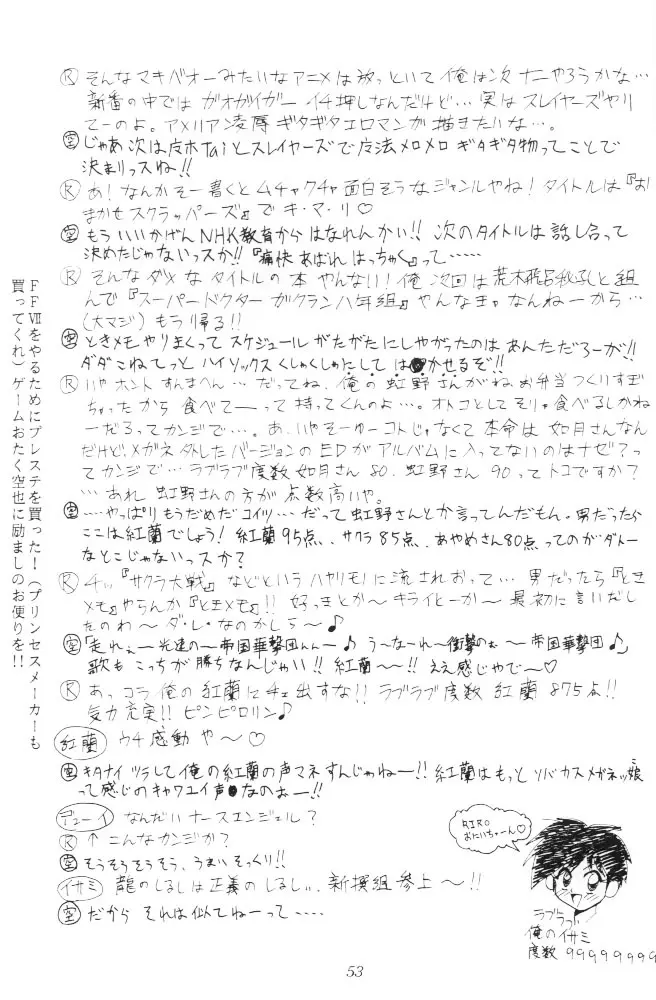 Ⓡ そんなマキバオーみたいなアニメは放っといて俺は次ナニやろうかな…
新番の中ではガオガイガーイチ押しなんだけど…実はスレイヤーズやり
てーのよ。アメリアン凌辱ギタギタエロマンが描きたいな…。
空 じゃあ次は皮ホTaiとスレイヤーズで魔法メロメロギタギタ物ってことで
決まりっスね!!
Ⓡ あ!なんかそー書くとムチャクチャ面白そうなジャンルやね!タイトルは『お
まかせスクラッパーズ』でキ・マ・リ♡
空 もういいかげんNHK教育からはなれんかい!!次のタイトルは話し合って
決めたじゃないっスか!!『痛快あばれはっちゃく』って……
Ⓡ そんなダメなタイトルの本やんない!俺次回は荒木飛呂秋子しと組
んで『スーパードクターがクラン八年組』やんなきゃなんねーから…
(大マジ)もう帰る!!
空 ときメモやりまくってスケジュールがたがたにしやがったのはあんただろーが!!
ダダこねてっとハイソックスくしゃくしゃにしてはかせるぞ!!
Ⓡ いやホントすんまへん…だってね、俺の虹野さんがねお弁当つくりすぎ
ちゃったから食べてーって持ってくんのよ…。オトコとしてそりゃ食べるしかね
ーだろってカンジで…。あ、いやそーゆーコトじゃなくて本命は如月さんなん
だけど、メガネ外したバージョンのEDがアルバムに入ってないのはナゼ?っ
てカンジで…ラブラブ度数如月さん80、虹野さん90ってトコですか?
…あれ虹野さんの方が点数高いや。
空 ……やっぱりもうだめだコイツ…だって虹野さんとか言ってんだもん。男だったら
ここは紅蘭でしょう!紅蘭95点、サクラ85点、あやめさん80点ってのがダトー
なとこじゃないっスか?
Ⓡ 4い『サクラ大戦』などというハヤリモノに流されおって…男だったら『とき
メモ』やらんか『ときメモ』!!好っきとか〜キライとーか〜最初に言いだし
たのわ〜ダ・レ・なのかしら〜♪
空 「走れぇー光速の〜帝国華撃団んんー♪う〜なーれ〜衝撃のぉ〜帝国華撃団♪」
歌もこっちが勝ちなんじゃい!!紅蘭〜〜!!ええ感じやで〜♡
Ⓡ あっコラ俺の紅蘭にチェ出すな!!ラブラブ度数紅蘭875点!!
気力充実!!ピンピロリン♪
紅蘭 ウチ感動や〜♡
空 キタナイツラして俺の紅蘭の声マネすんじゃねー!!紅蘭はもっとソバカスメガネッ娘
って感じのキャワエイ声なのぉー!!
デューイ なんだいナースエンジェル?
Ⓡ ↑こんなカンジか?
空 そうそうそうそう、うまいそっくり!!
イサミ 龍のしるしは正義のしるし、新撰組参上〜!!
空 だからそれは似てねーって……
RIRO
おにいちゃーん♡
ラブラブ
俺のイサミ
度数999999999
FFⅦをやるためにプレステを買った!(プリンセスメーカーも
買ってくれ)ゲームおたく空也に励ましのお便りを!!
53